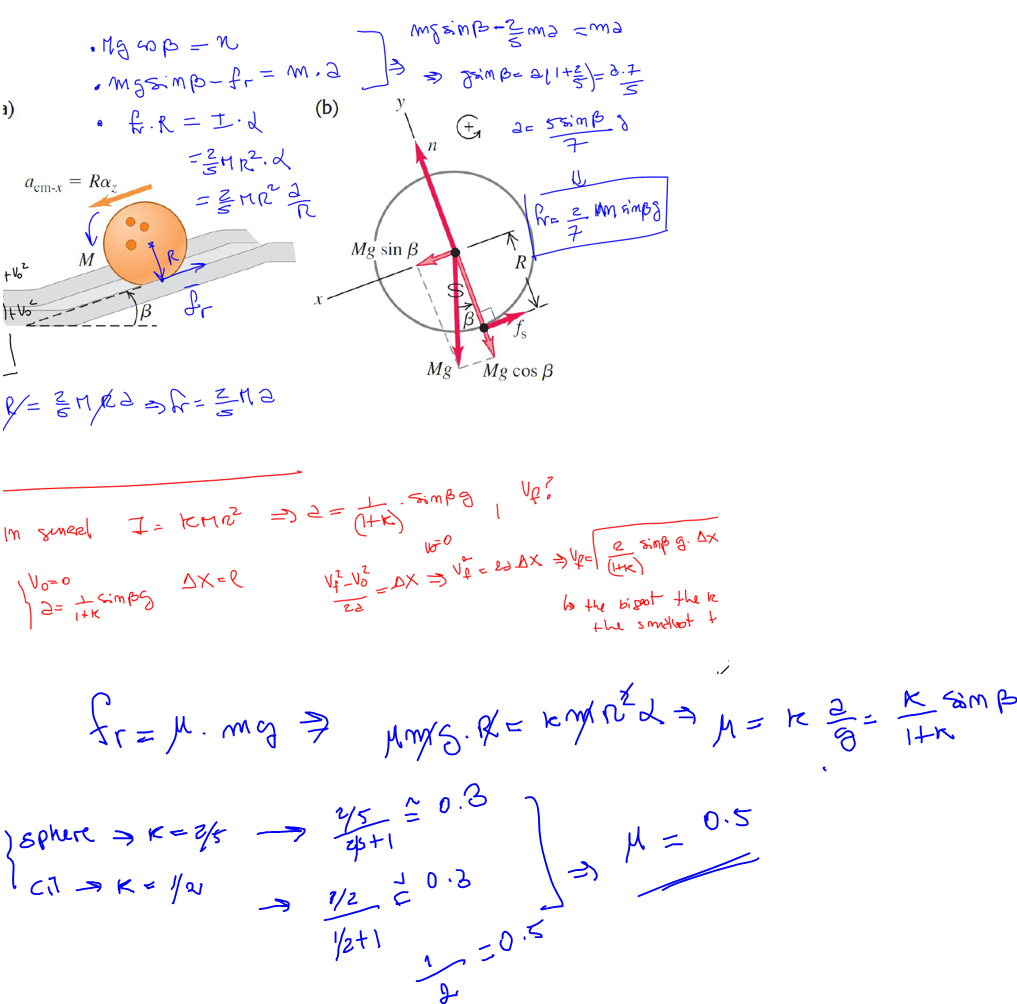 • Mg cos β = n
• mg sin β - fr = m . a
• fr . R = I . α
= 2/5 M R² . α
= 2/5 M R² a/R
⇒ mg sin β - 2/5 ma = ma
⇒ g sin β = a(1 + 2/5) = a . 7/5
a = 5 sin β/7 g
⇓
fr = 2/7 Mm sin β g
a)
a_cm-x = Rα_z
M
R
fr
β
+V₀²
1+V₀²
(b)
y
n
Mg sin β
R
x
S
β
f_s
Mg
Mg cos β
R = 2/5 M R a ⇒ fr = 2/5 M a
In general I = K M R² ⇒ a = 1/(1+K) . sin β g , Vf?
V₀ = 0
a = 1/(1+K) sin β g
Δx = l
(Vf² - V₀²)/2a = Δx ⇒ Vf² = 2a Δx ⇒ Vf = √(2/(1+K) sin β g . Δx)
V₀ = 0
↳ the bigest the K
the smallest t
fr = μ . mg ⇒ μ m g . R = k m R² α ⇒ μ = k a/g = K/(1+K) sin β
sphere → K = 2/5 → (2/5)/(2/5+1) ≅ 0.3
cil → K = 1/2 → (1/2)/(1/2+1) ≅ 0.3
1/2 = 0.5
⇒ μ = 0.5